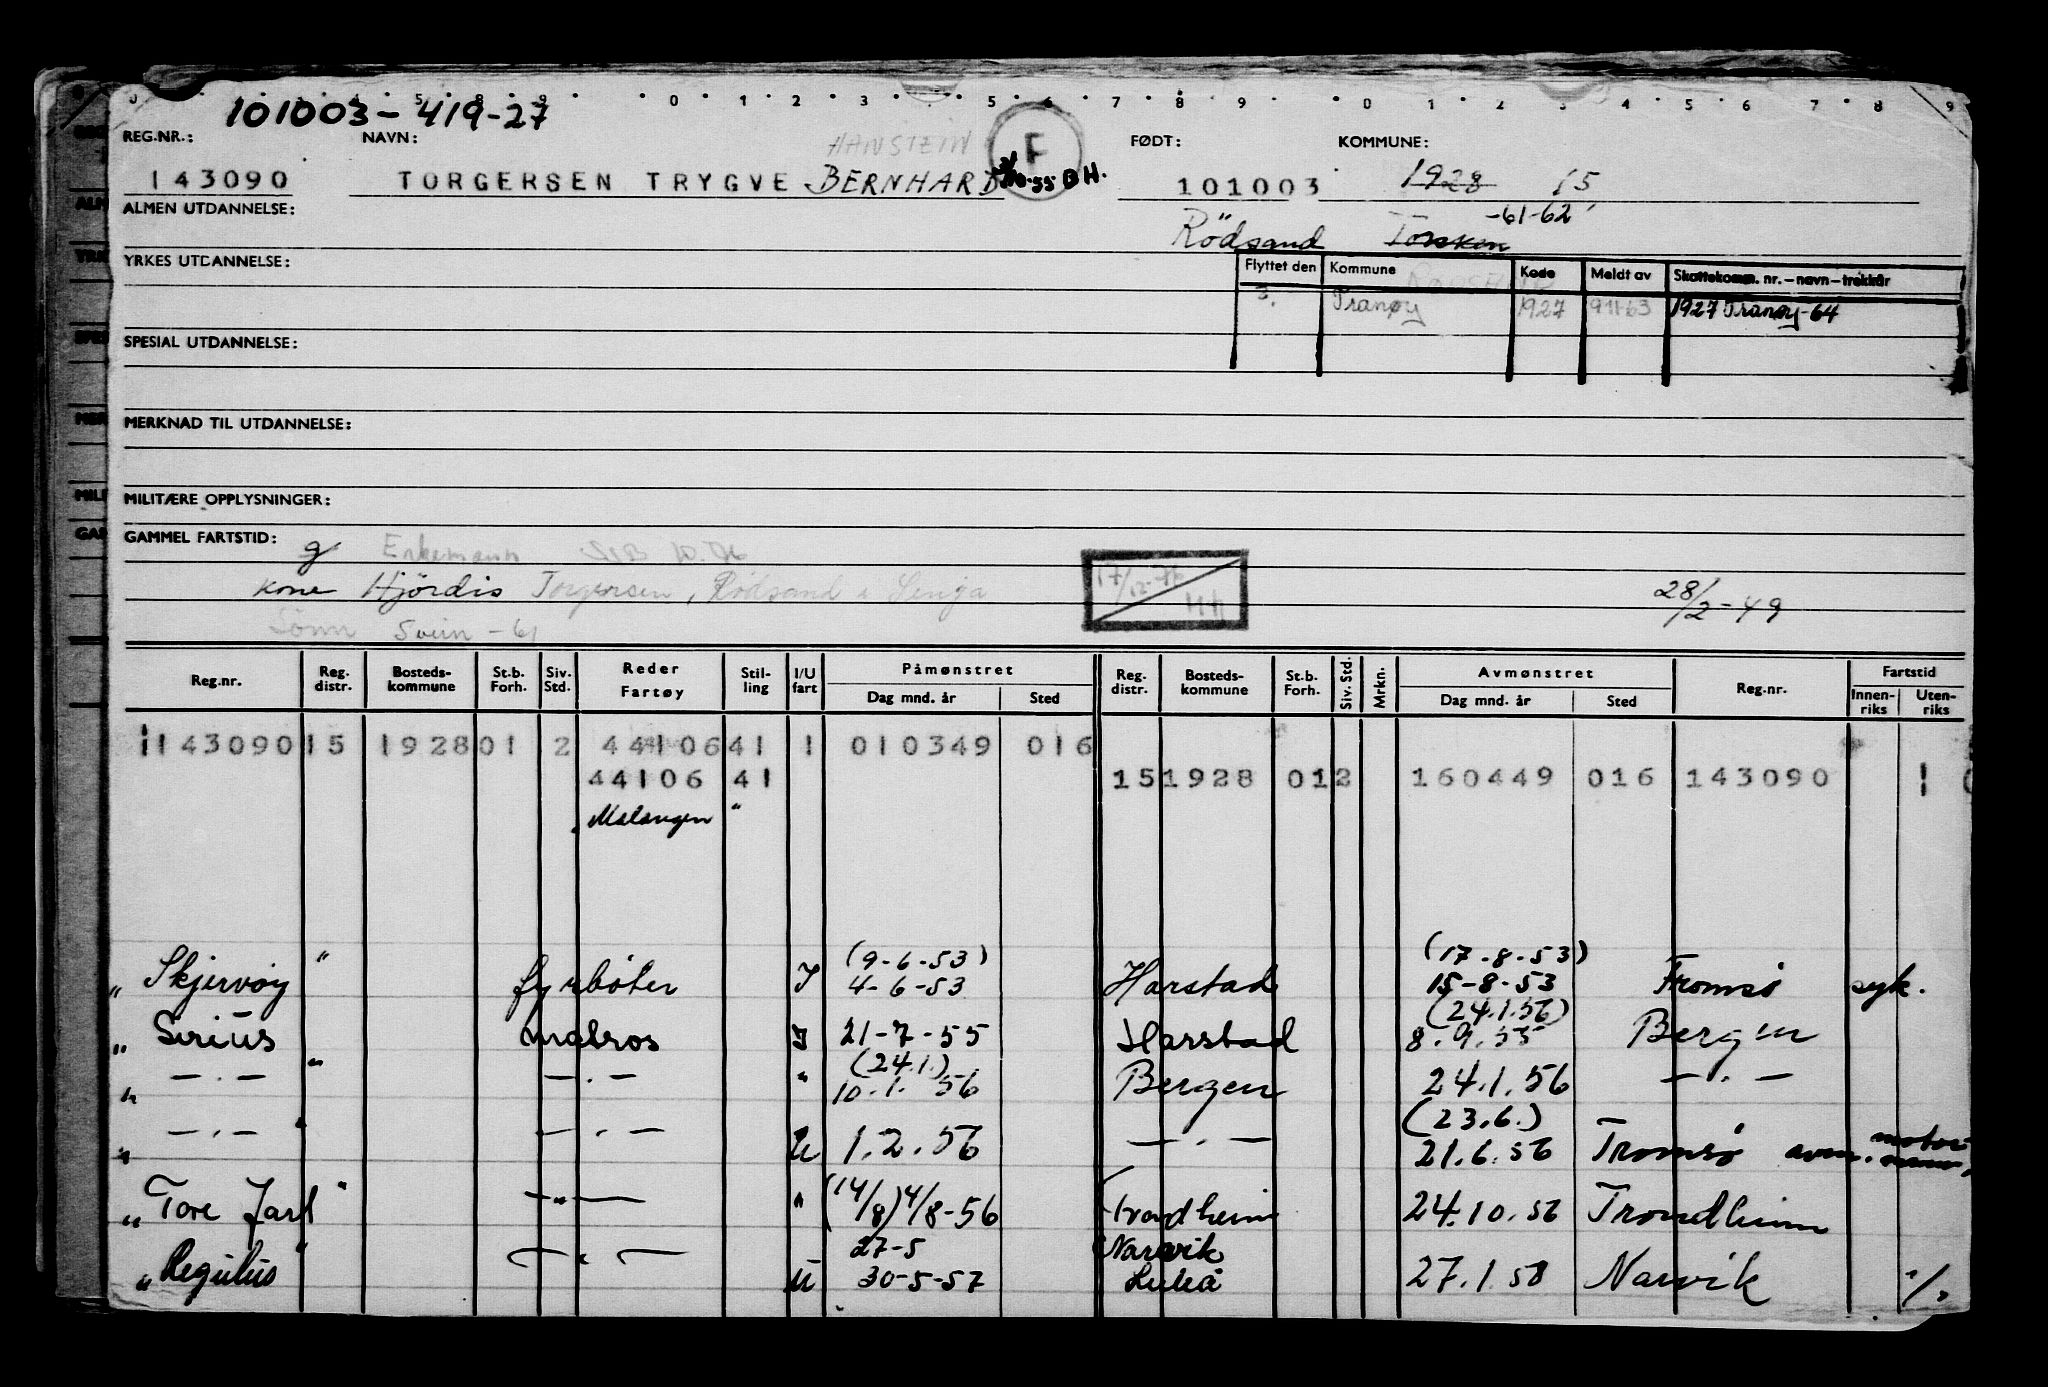 101003-419-27
REG.NR.: NAVN: HANSTEIN F FØDT: KOMMUNE:
143090 TORGERSEN TRYGVE BERNHARD 101003 1928 15
ALMEN UTDANNELSE: -61-62
Rödsand Torsken
YRKES UTDANNELSE:
Flyttet den Kommune Kode Meldt av Skattekomm. nr. – navn – trekkår
3. Tranøy 1927 91163 1927 Tranøy-64
SPESIAL UTDANNELSE:
MERKNAD TIL UTDANNELSE:
MILITÆRE OPPLYSNINGER:
GAMMEL FARTSTID:
g Enkemann
kone Hjördis Torgersen, Rödsand i Senja 17/12-76 28/2-49
Sönn Svein -61
Reg.nr. Reg. distr. Bosteds-kommune St.b. Forh. Siv. Std. Reder Fartøy Stil-ling I/U fart Påmønstret Dag mnd. år Sted Reg. distr. Bosteds-kommune St.b. Forh. Siv. Std. Mrkn. Avmønstret Dag mnd. år Sted Reg.nr. Fartstid Innen-riks Uten-riks
143090 15 1928 01 2 44106 41 1 010349 016
44106 41 15 1928 01 2 160449 016 143090 1
Malangen "
(9-6-53) (17-8-53)
" Skjervøy " fyrbøter I 4-6-53 Harstad 15-8-53 Tromsø syk.
(24.1.56)
" Sirius matros I 21-7-55 Harstad 8.9.55 Bergen
(24.1.)
" —.— " —.— " 10.1.56 Bergen 24.1.56 —.—
(23.6.)
" —.— " —.— U 1.2.56 —.— 21.6.56 Tromsø avm. motormann
" Tore Jarl " —"— " (14/8) 4/8-56 Trondheim 24.10.56 Trondheim
27-5 Narvik
" Regulus " —.— U 30-5-57 Luleå 27.1.58 Narvik %